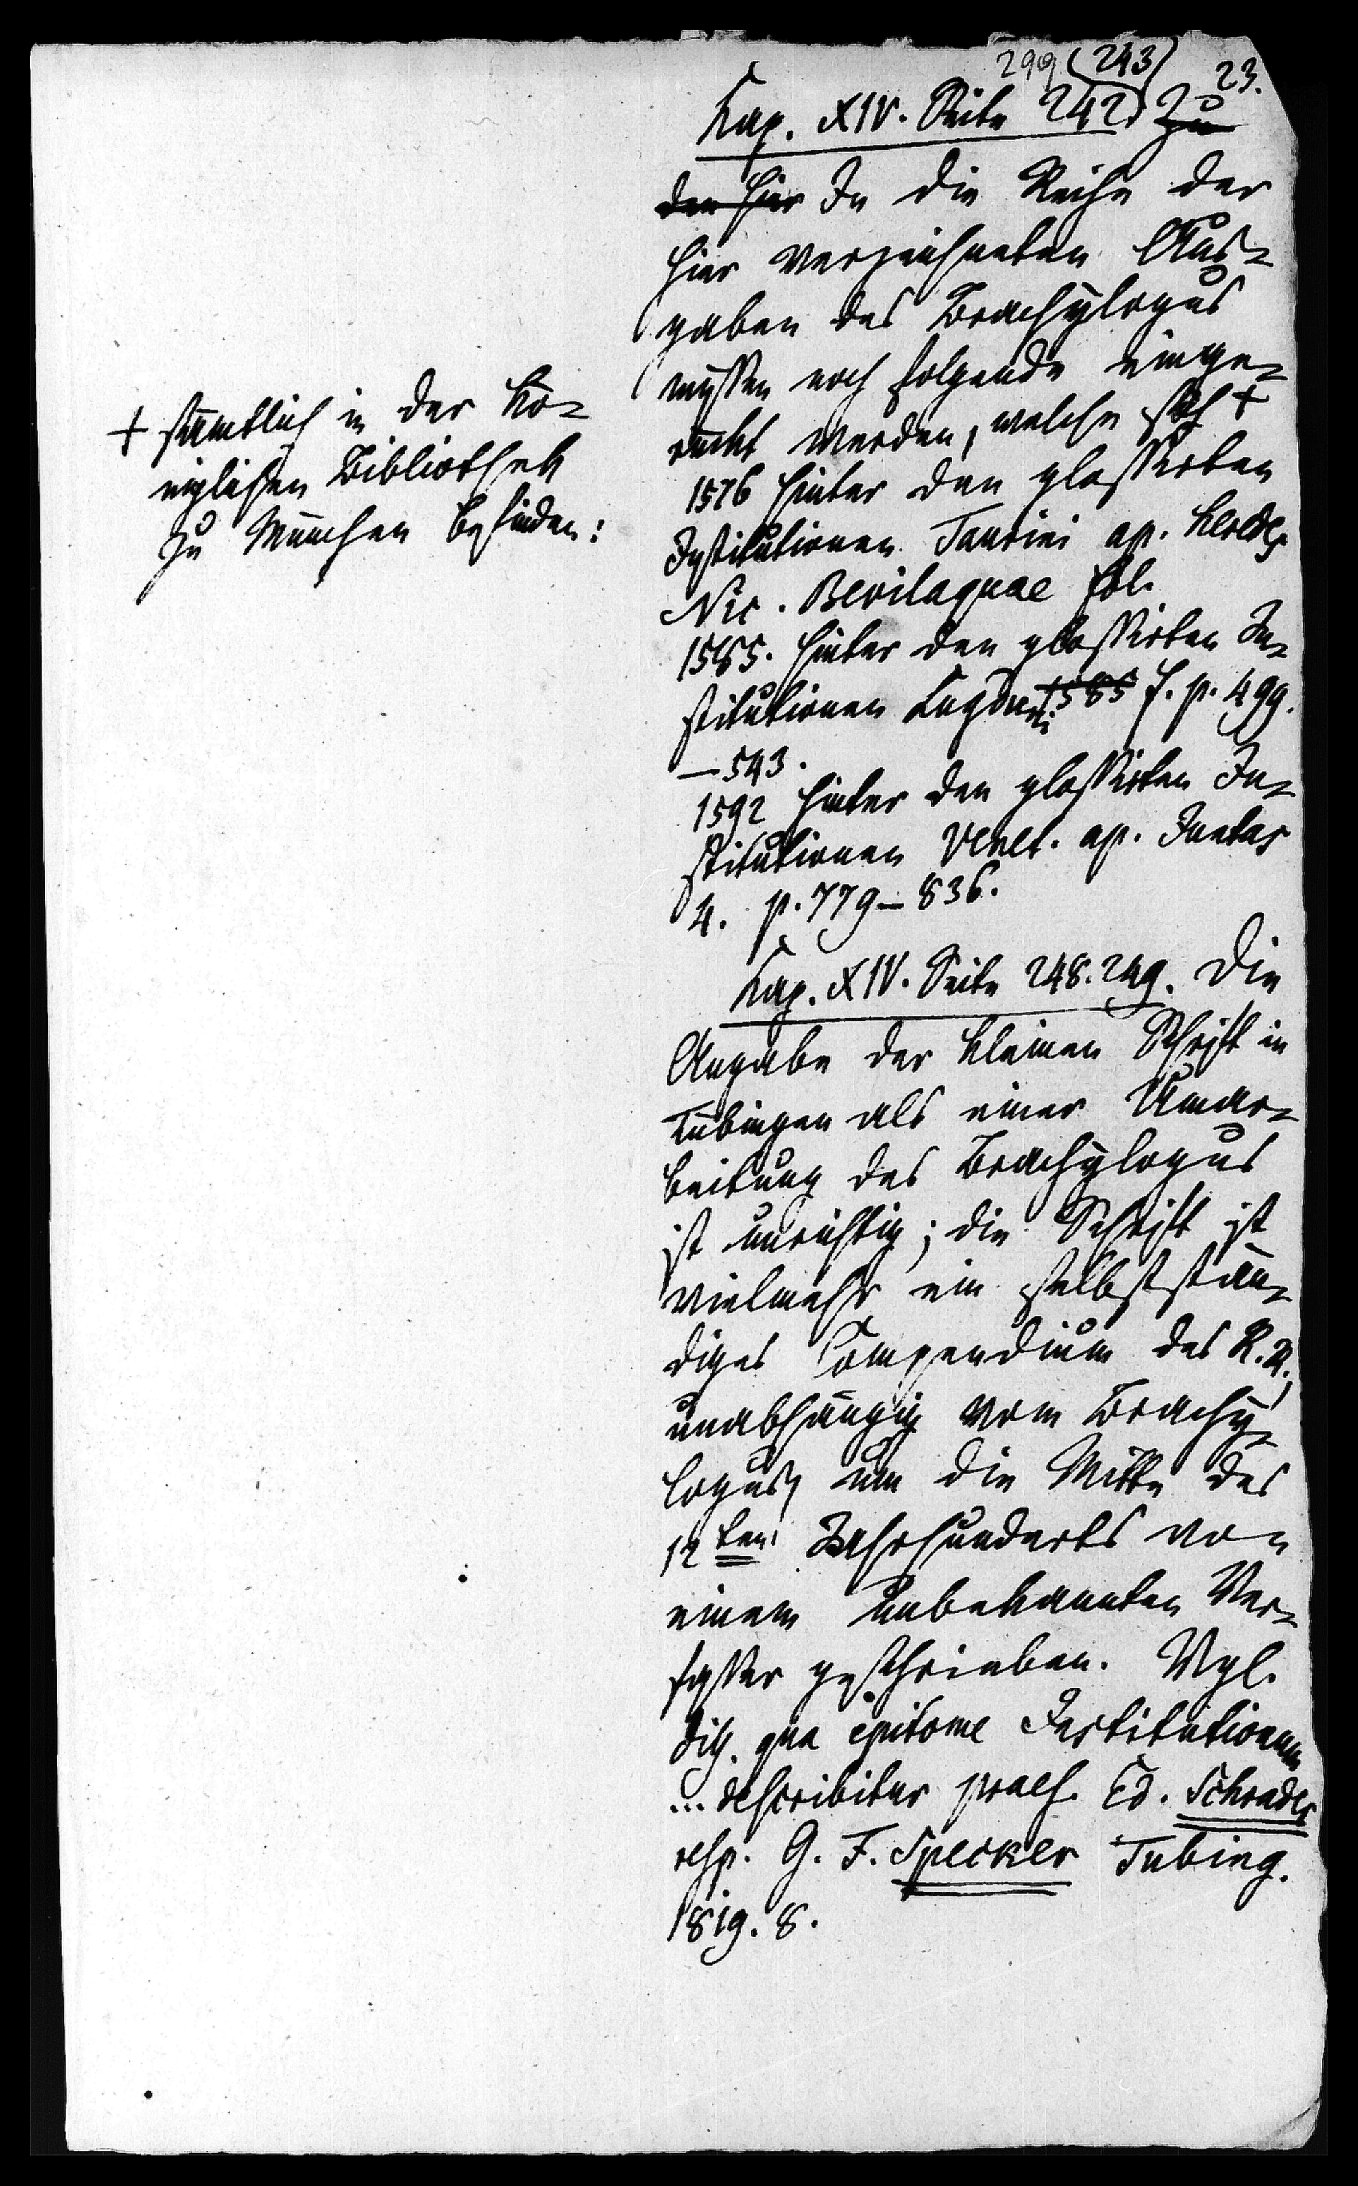 299 (243) 23.
Kap. XIV. Seite 242) Zu
den hier In die Reihe der
hier verzeichneten Aus-
gaben des Brachylogus
müssen noch folgende einge-
rückt werden, welche sich +
+ sämtlich in der Kö-
niglichen Bibliothek
zu München befinden:
1576 hinter den glossirten
Institutionen Taurini ap. heredes
Nic. Bevilaquae fol.
1585. hinter den glossirten In-
stitutionen Lugduni 1585 f. p. 499.
—543.
1592 hinter den glossirten In-
stitutionen Venet. ap. Juntas
4. p. 779—836.
Kap. XIV. Seite 248. 249. Die
Angabe der kleinen Schrift in
Tübingen als einer Umar-
beitung des Brachylogus
ist unrichtig; die Schrift ist
vielmehr ein selbststän-
diges Compendium des R. R.,
unabhängig vom Brachy-
logus um die Mitte des
12ten Jahrhunderts von
einem unbekannten Ver-
fasser geschrieben. Vgl.
Diss. qua epitome Institutionum
... describitur praes. Ed. Schrader
resp. G. F. Specker Tubing.
1819. 8.